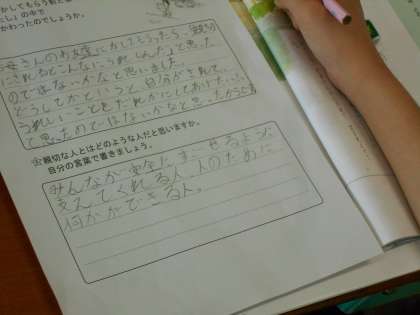 かしてもらう前と
にし」の中で
かわったのでしょうか。
お母さんのお友達にかしてもらったら、親切
にされるとこんなにうれしんだ。と思った
のではないかなと思いました。
どうしてかというと、自分がされて、
うれしいことをだれかにしてあげたい。
と思ったのではないかなと思ったからです
☆親切な人とはどのような人だと思いますか。
自分の言葉で書きましょう。
みんなが安全にすごせるように
支えてくれる人。人のために
何かができる人。